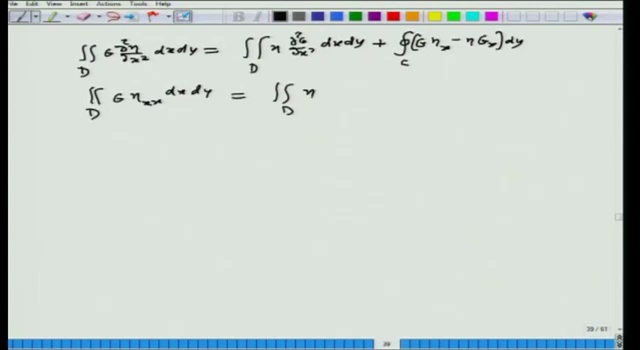 File Edit View Insert Actions Tools Help
∬_D G ∂²η/∂x² dxdy = ∬_D η ∂²G/∂x² dxdy + ∮_C (G η_x − η G_x) dy
∬_D G η_xx dxdy = ∬_D η
39 / 61
39